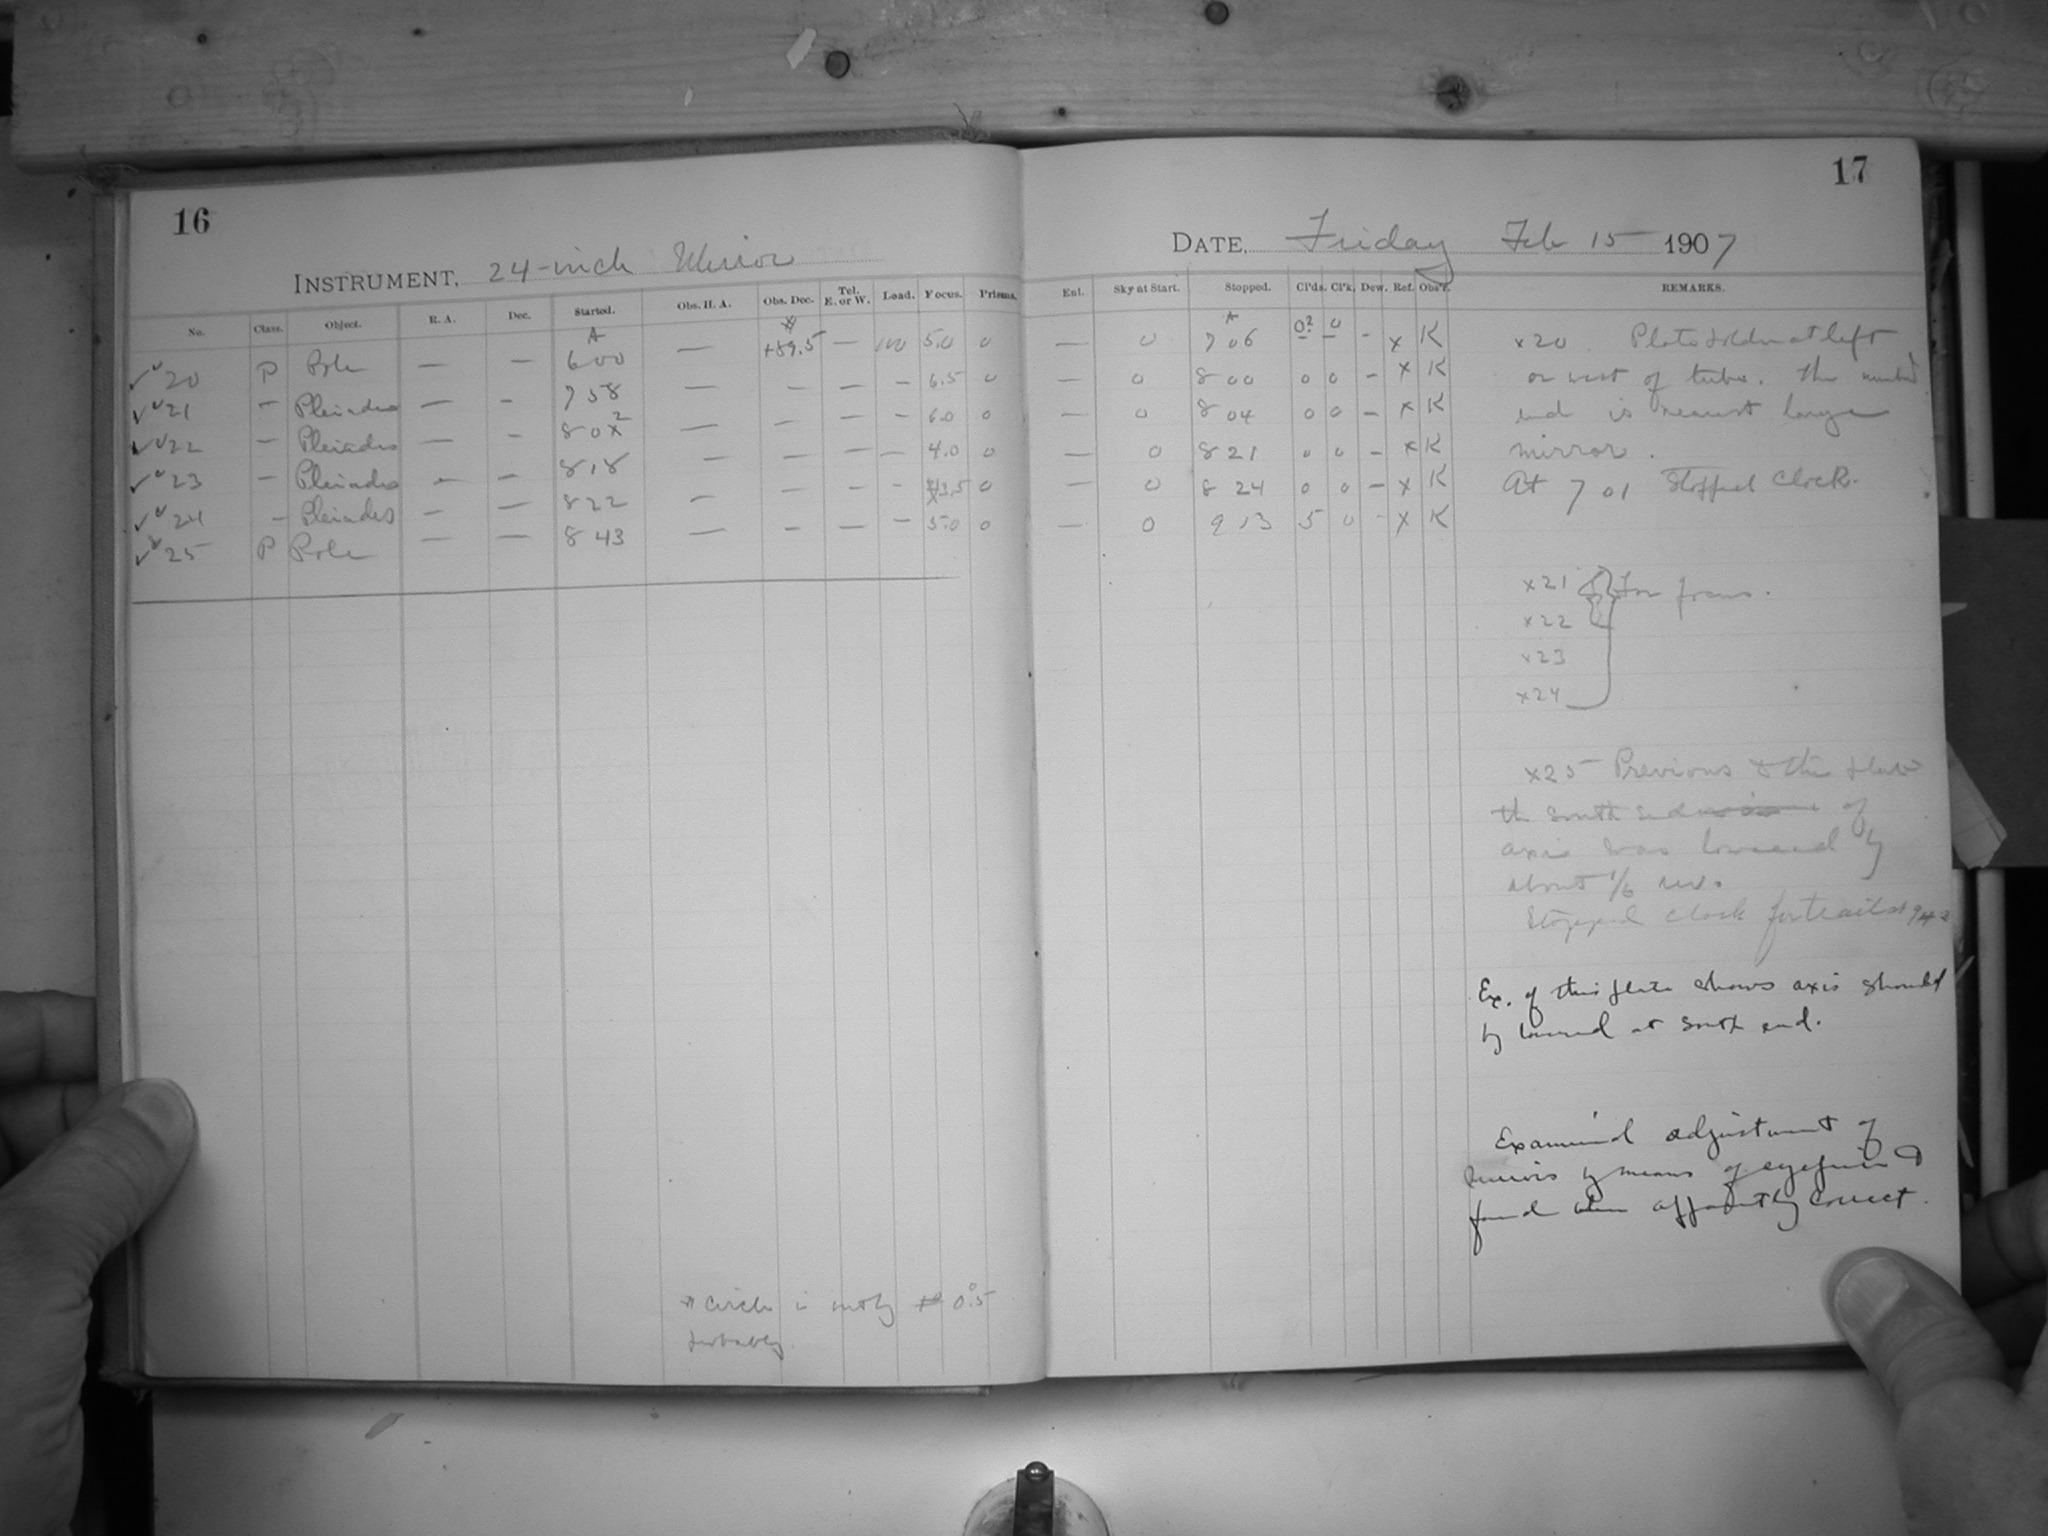 16
INSTRUMENT, 24-inch Mirror
No. Class. Object. R. A. Dec. Started. Obs. H. A. Obs. Dec. Tel. E. or W. Load. Focus. Prisms.
20 P Pole — — 6 00 — +89.5 — 5.0 0
21 — Pleiades — — 7 58 — — — — 6.5 0
22 — Pleiades — — 8 02 — — — — 6.0 0
23 — Pleiades — — 8 18 — — — — 4.0 0
24 — Pleiades — — 8 22 — — — — 3.5 0
25 P Pole — — 8 43 — — — — 5.0 0
* Circle is 0.5
probably
17
DATE, Friday Feb 15 1907
Enl. Sky at Start. Stopped. Cl'ds. Cl'k. Dew. Ref. Obs'r. REMARKS.
— 0 7 06 0? 0 - x K
— 0 8 00 0 0 - x K
— 0 8 04 0 0 - x K
— 0 8 21 0 0 - x K
— 0 8 24 0 0 - x K
— 0 9 13 5 0 - x K
x20. Plateholder at left
or west of tube. The number
end is nearest large
mirror.
At 7 01 Stopped Clock.
x21 } For focus.
x22
x23
x24
x25 Previous to this plate
the south end of
axis was lowered by
about 1/6 rev.
Stopped clock for trail at
Ex. of this plate shows axis should
by lowered at south end.
Examined adjustment of
mirrors by means of eyepiece &
found them apparently correct.